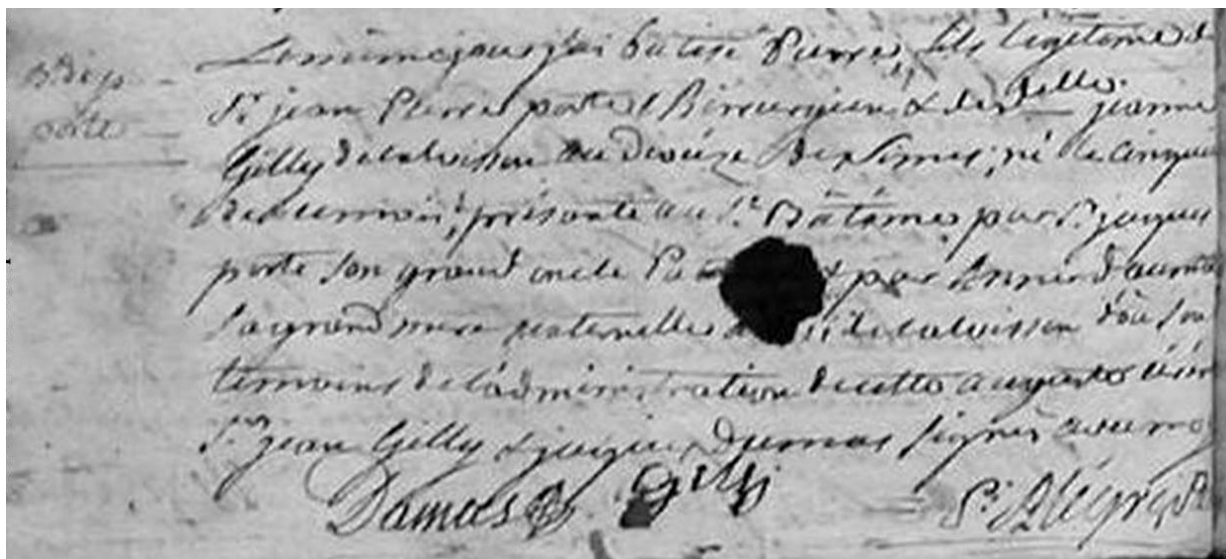 Bt de p
porte
Le même jour j'ai batisé Pierre, fils legitime de
Sr jean Pierre porte Chirurgien & de delle jeanne
Gilly de calvisson au diocèze de Nimes, né le cinque
de ce mois, présenté au St Bâtême par Sr jaques
porte son grand oncle Pat & par Anne daumte
sa grand mere paternelle de calvisson d'où son
temoins de l'administration de cette auguste
Srs jean Gilly & jaques Dumas signés avec mo
Dumas Gilly